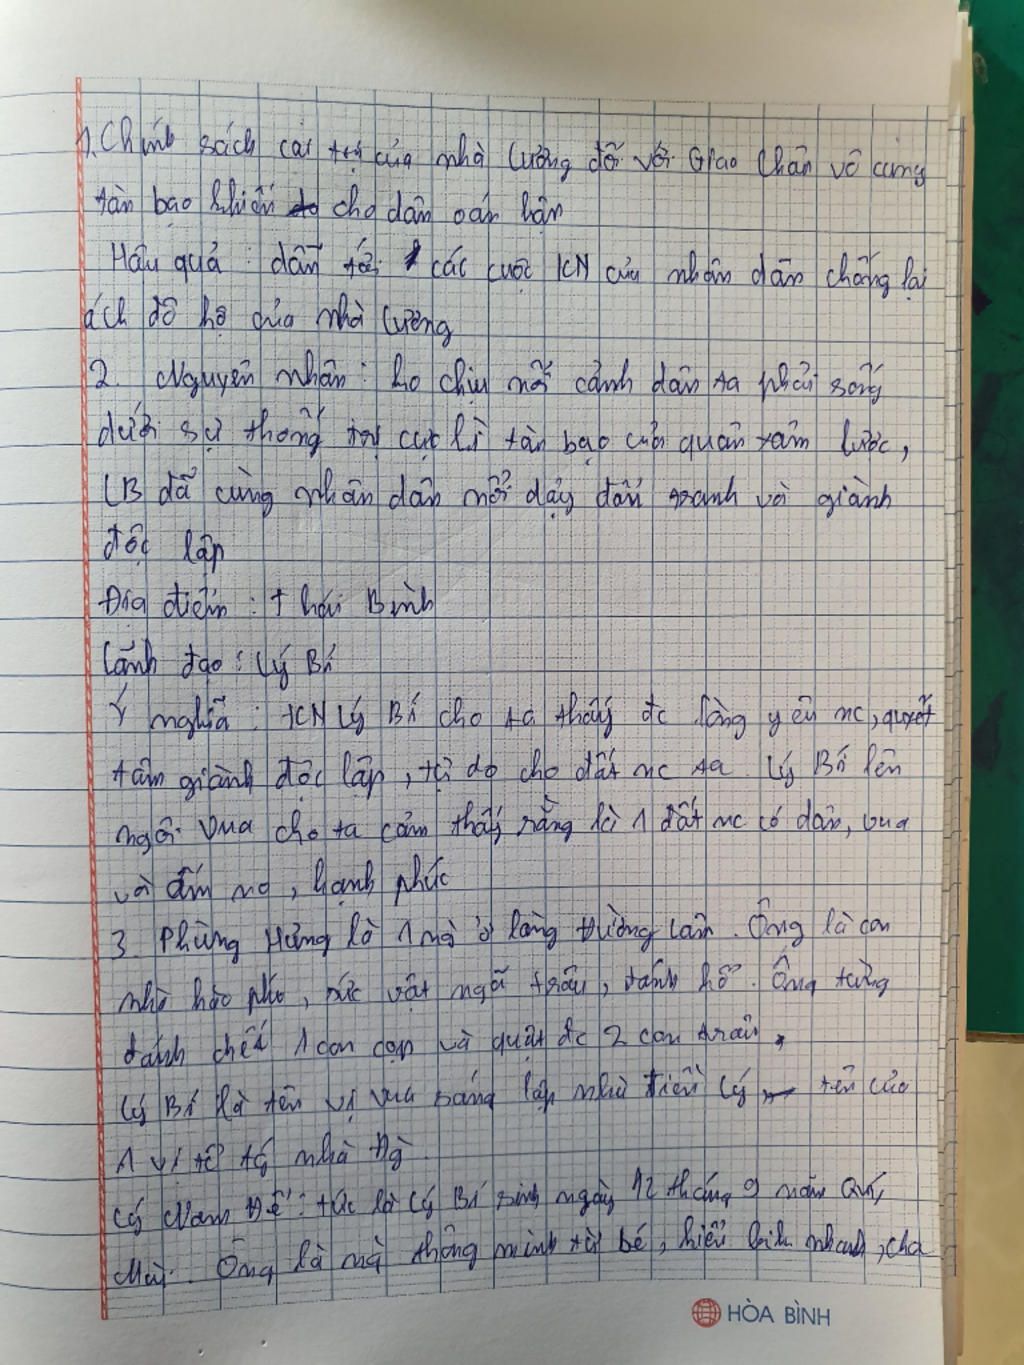 1. Chính sách cai trị của nhà Lương đối với Giao Châu vô cùng
tàn bạo khiến cho dân oán hận
Hậu quả : dẫn tới các cuộc KN của nhân dân chống lại
ách đô hộ của nhà Lương
2. Nguyên nhân : ko chịu nổi cảnh dân ta phải sống
dưới sự thống trị cực kì tàn bạo của quân xâm lược,
LB đã cùng nhân dân nổi dậy đấu tranh và giành
độc lập
Địa điểm : Thái Bình
Lãnh đạo : Lý Bí
Ý nghĩa : KN Lý Bí cho ta thấy đc lòng yêu nc, quyết
tâm giành độc lập, tự do cho đất nc ta. Lý Bí lên
ngôi vua cho ta cảm thấy rằng là 1 đất nc có dân, vua
và ấm no, hạnh phúc
3. Phùng Hưng là 1 ng ở làng Đường Lâm. Ông là con
nhà hào phú, sức vật ngã trâu, đánh hổ. Ông từng
đánh chết 1 con cọp và quật đc 2 con trâu.
Lý Bí là tên vị vua sáng lập nhà Tiền Lý, tên của
1 vị tể tg nhà
Lý Nam Đế : tức là Lý Bí sinh ngày 12 tháng 9 năm Quý
Mùi. Ông là ng thông minh từ bé, hiểu biết nhanh, cha
HÒA BÌNH